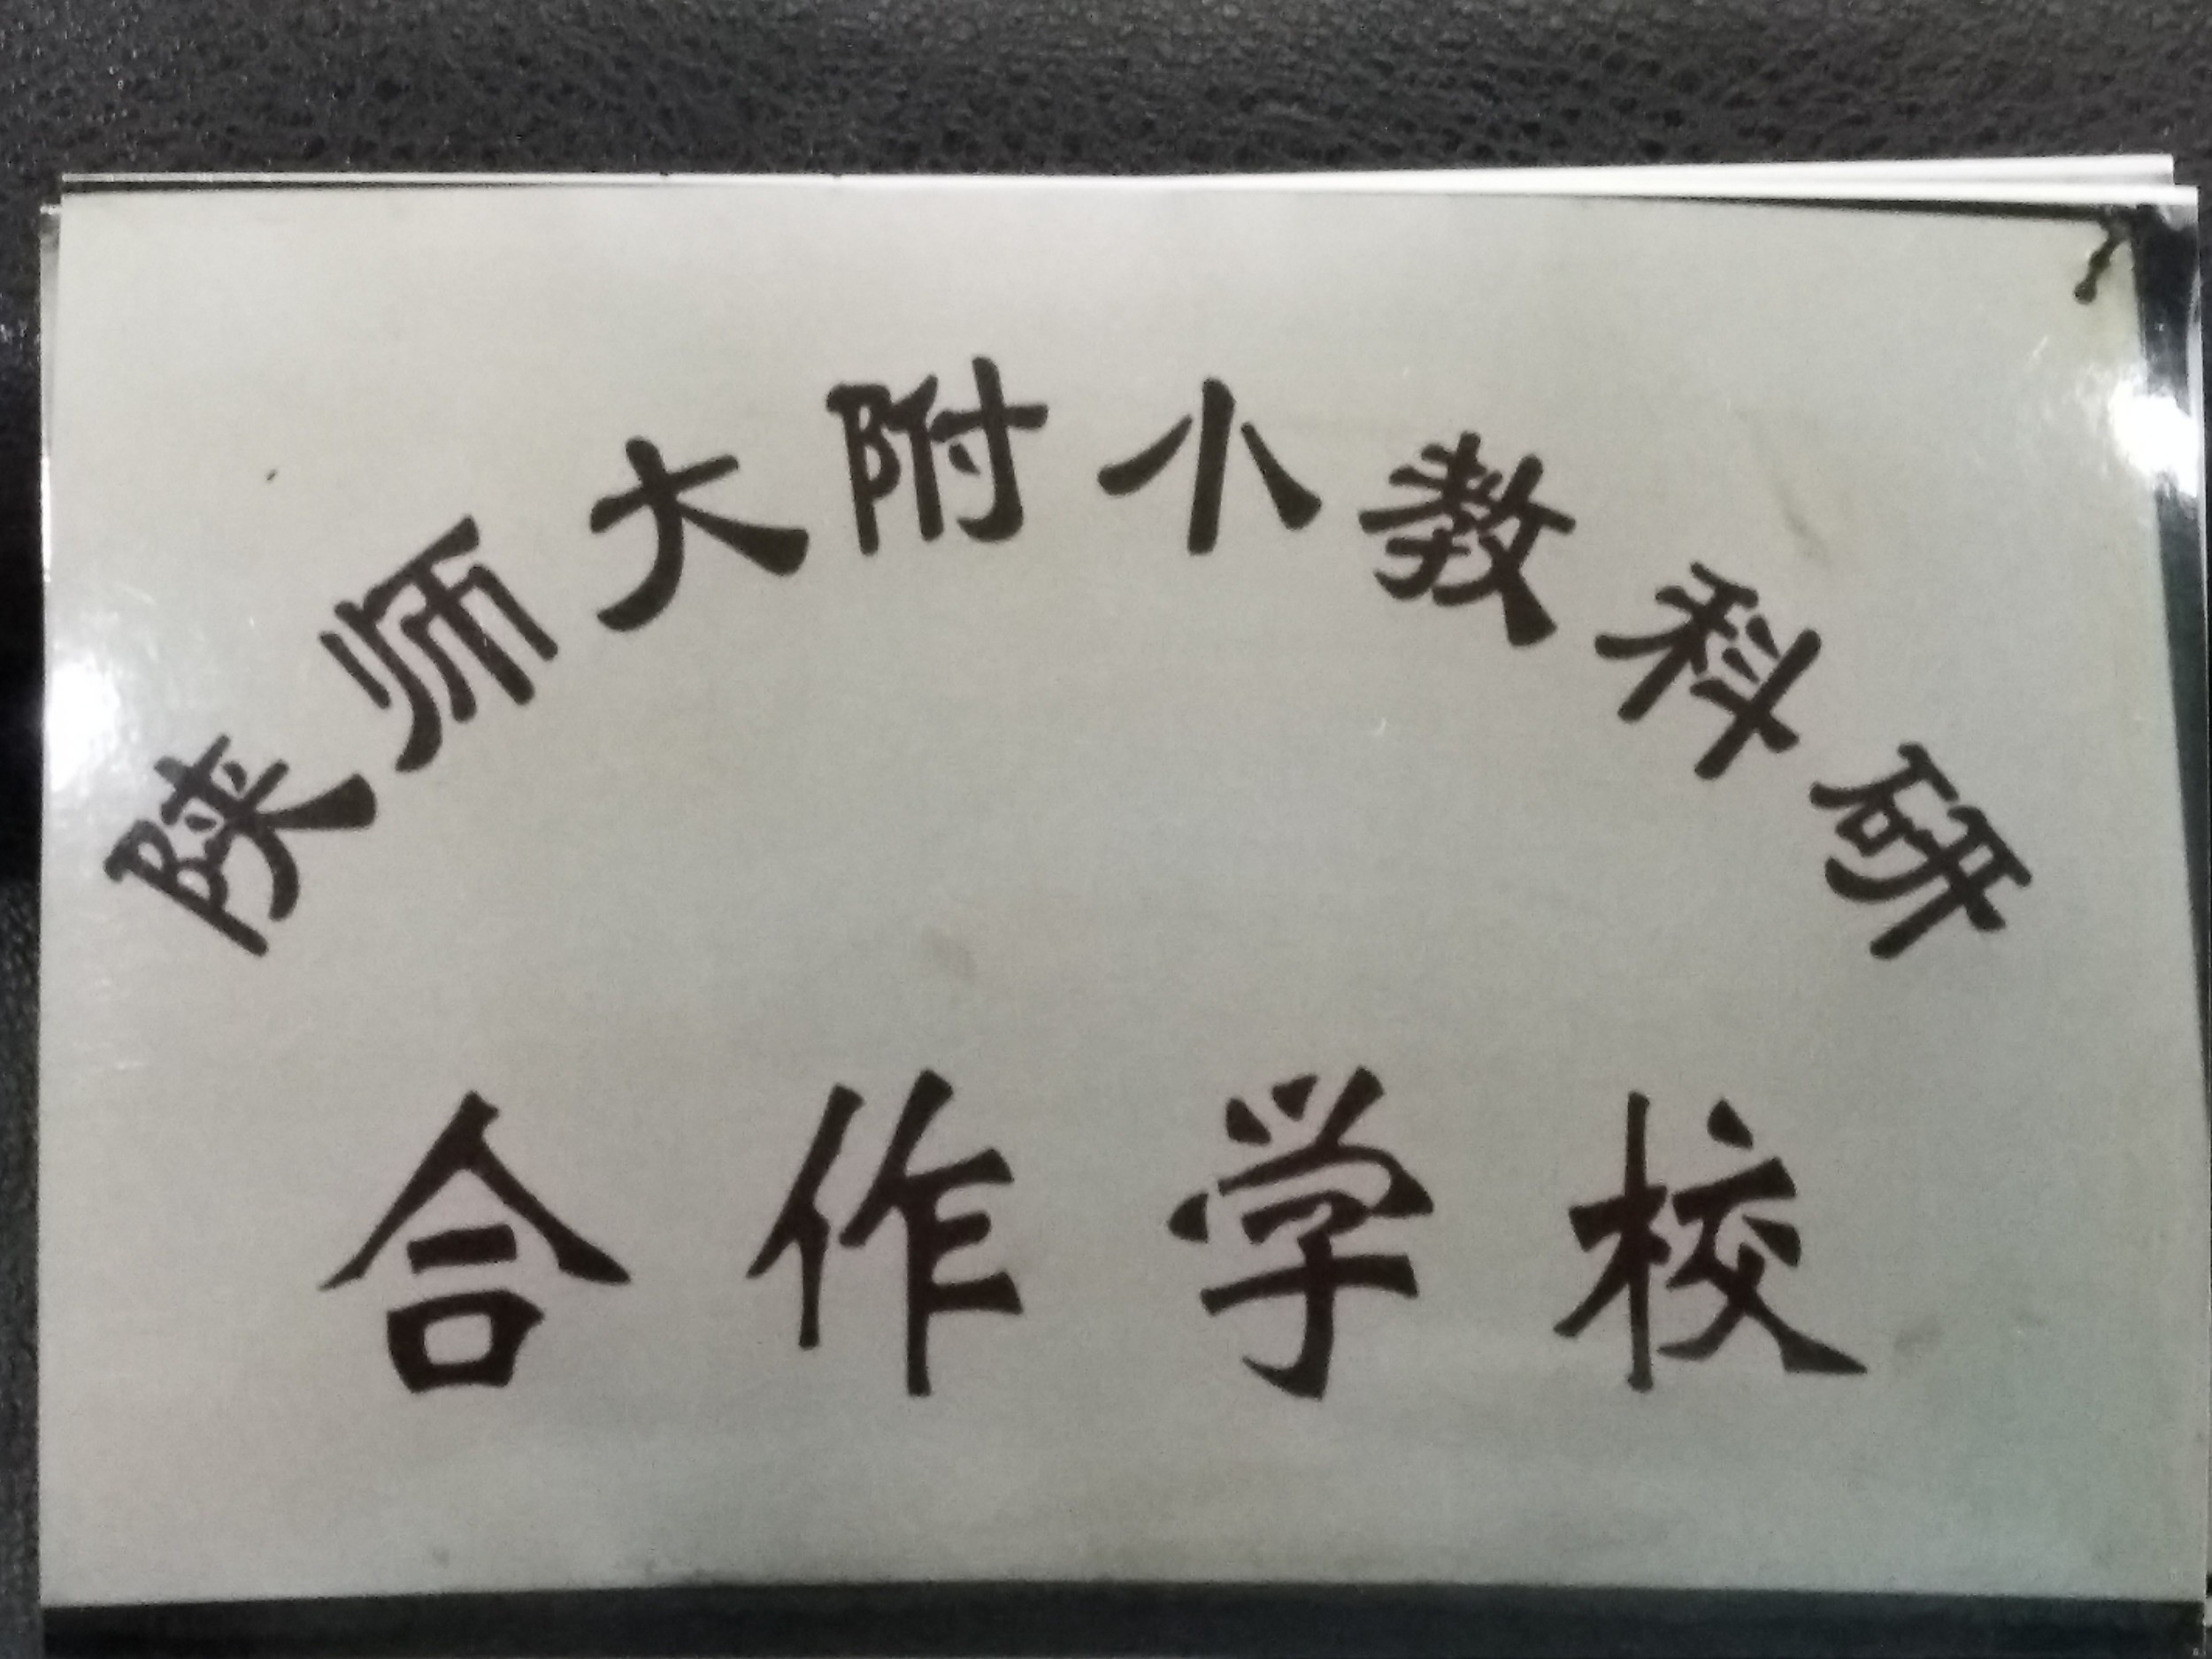 陕师大附小教科研
合作学校